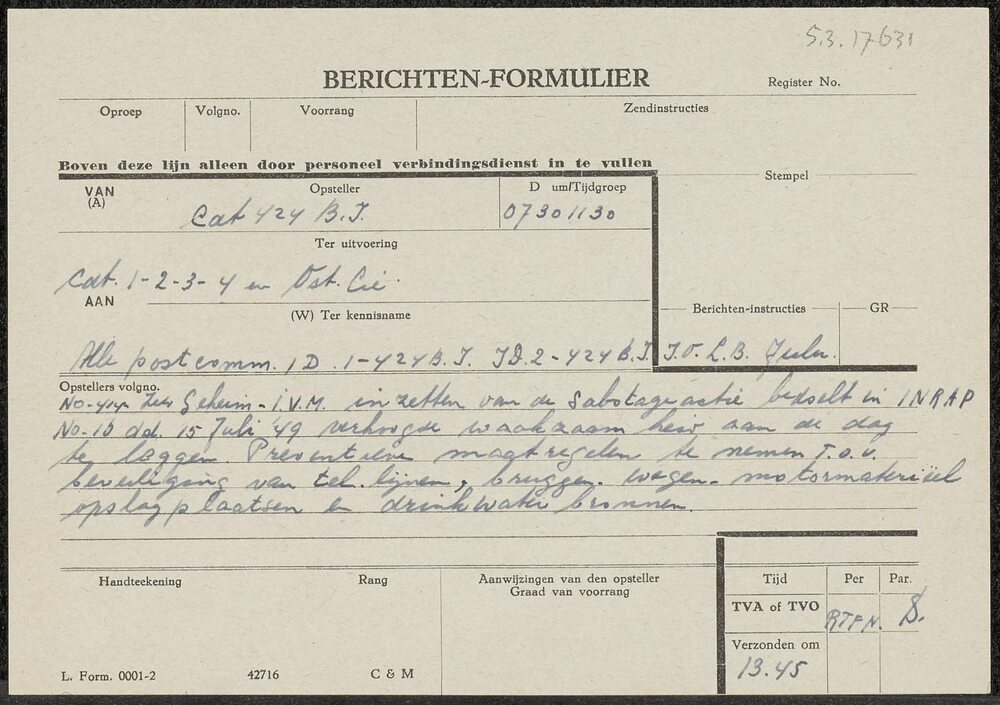 5.3.17631
BERICHTEN-FORMULIER
Register No.
Oproep Volgno. Voorrang Zendinstructies
Boven deze lijn alleen door personeel verbindingsdienst in te vullen
Stempel
VAN (A) Opsteller D um/Tijdgroep
Cdt 424 B.I. 07301130
Ter uitvoering
Cdt. 1-2-3-4 en Ost. Cie.
AAN
(W) Ter kennisname
Berichten-instructies GR
Alle postcomm. ID. 1-424 B.I. ID.2-424 B.I. I.O. L.B.
Opstellers volgno.
No- Zeer Geheim - I.V.M. inzetten van de Sabotageactie bedoelt in INRAP
No-15 dd. 15 Juli 49 verhoogde waakzaamheid aan de dag
te leggen. Preventieve maatregelen te nemen T.o.v.
beveiliging van tel. lijnen, bruggen. wegen- motormateriëel
opslagplaatsen en drinkwater bronnen.
Handteekening Rang Aanwijzingen van den opsteller
Graad van voorrang
Tijd Per Par.
TVA of TVO RTFN. S.
Verzonden om
13.45
L. Form. 0001-2 42716 C & M